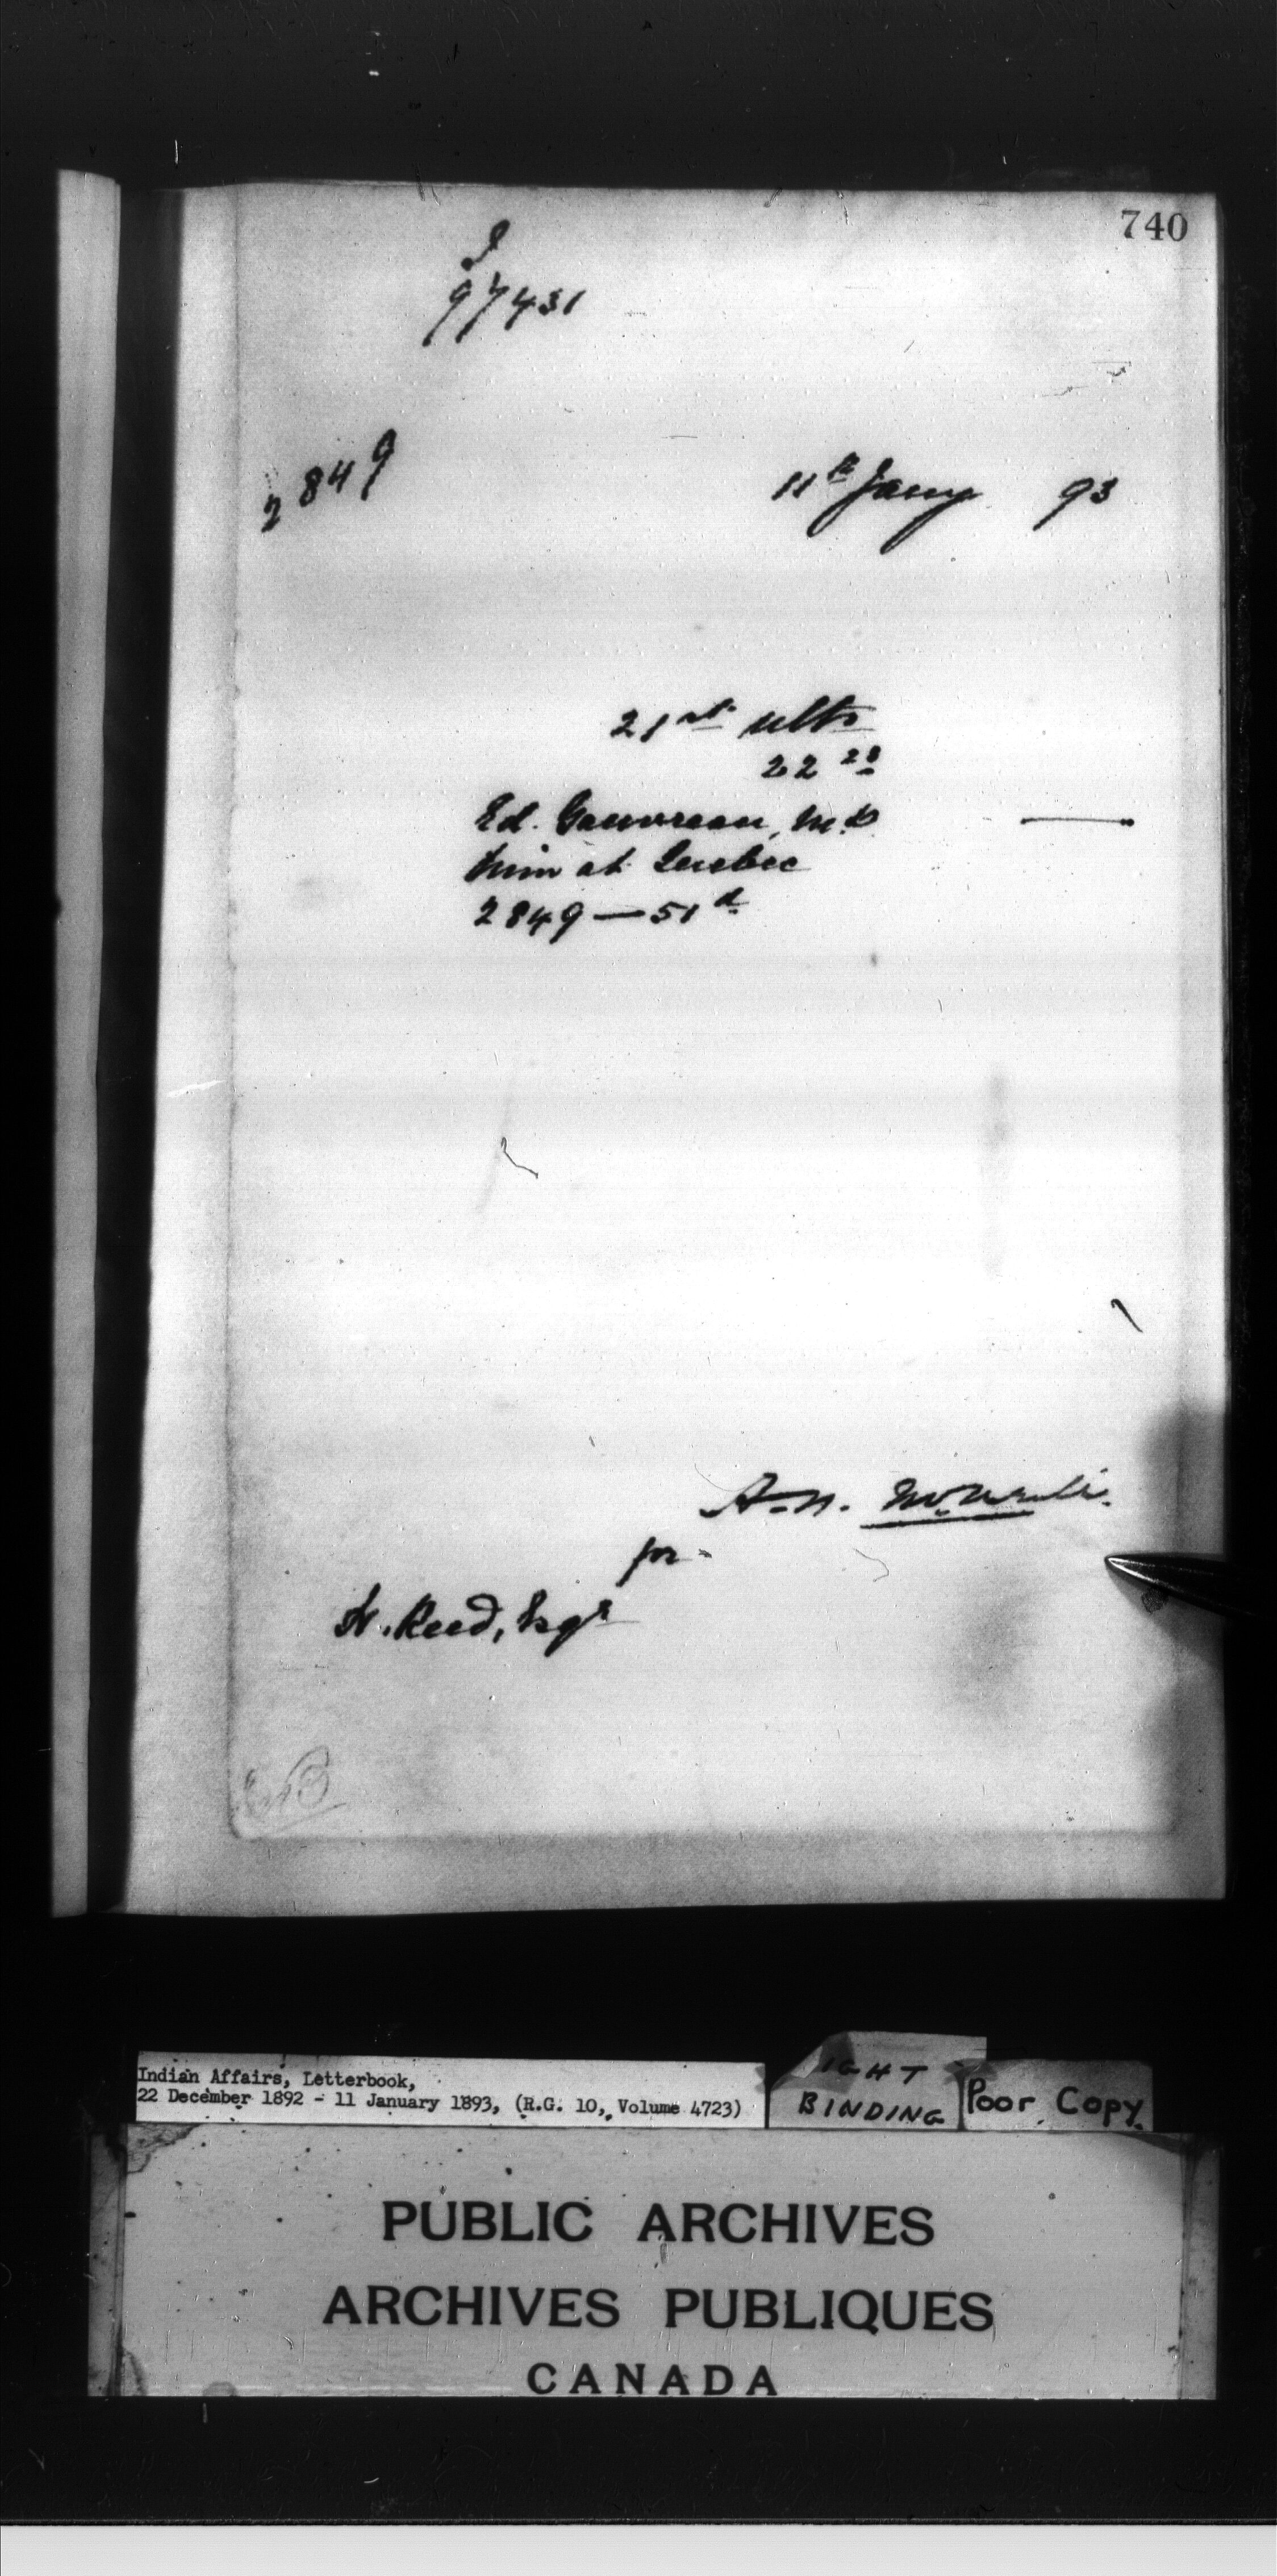 740
97431
2849
11th Jany 93
21st ulto
22 28
Ed. Gauvreau, M.D
him at Quebec
2849 — 51 d.
A. N. McNeill.
for
H. Reed, Esqr
Indian Affairs, Letterbook,
22 December 1892 - 11 January 1893, (R.G. 10, Volume 4723)
IGHT
BINDING
Poor Copy.
PUBLIC ARCHIVES
ARCHIVES PUBLIQUES
CANADA